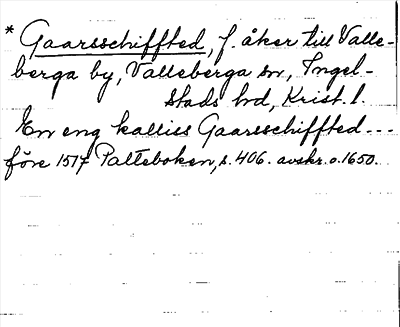 * Gaarsschiffted, f. åker till Valle-
berga by, Valleberga sn, Ingel-
stads hd, Krist. l.
En eng kalliss Gaarsschiffted...
före 1517 Palteboken, s. 406. avskr. o. 1650.